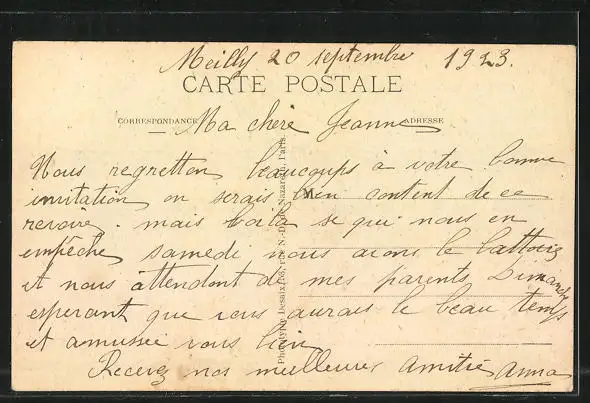 Meilly 20 septembre 1923.
CARTE POSTALE
CORRESPONDANCE
ADRESSE
Ma chere Jeanne
Nous regretton beaucoups à votre bonne
invitation on serais bien content de ce
revoire. mais voila se qui nous en
empêche samedi nous avons le battoir
et nous attendont de mes parents Dimanche
esperant que vous aurais le beau temps
et amussée vous bien
Recevez nos meilleures amitié Anna
Phototypie Desaix, rue N.-D. de Nazareth, Paris.
M